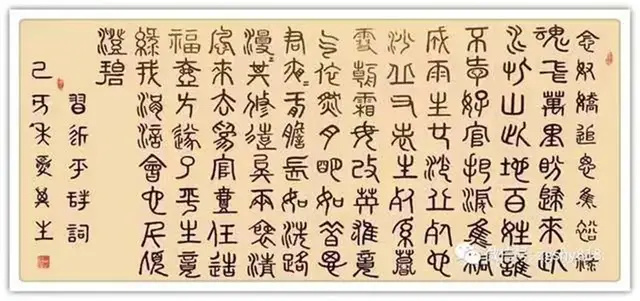 念奴嬌追思焦裕祿
魂飛萬里盼歸來此
水此山此地百姓誰
不愛好官把淚焦桐
成雨生也沙丘死也
沙丘父老生死系暮
雪朝霜毋改英雄意
气依然月明如昔思
君夜夜肝膽長如洗路
漫漫其修遠矣兩袖清
風來去為官一任造
福一方遂了平生意
綠我涓滴會它千頃
澄碧
習近平詩詞
己亥